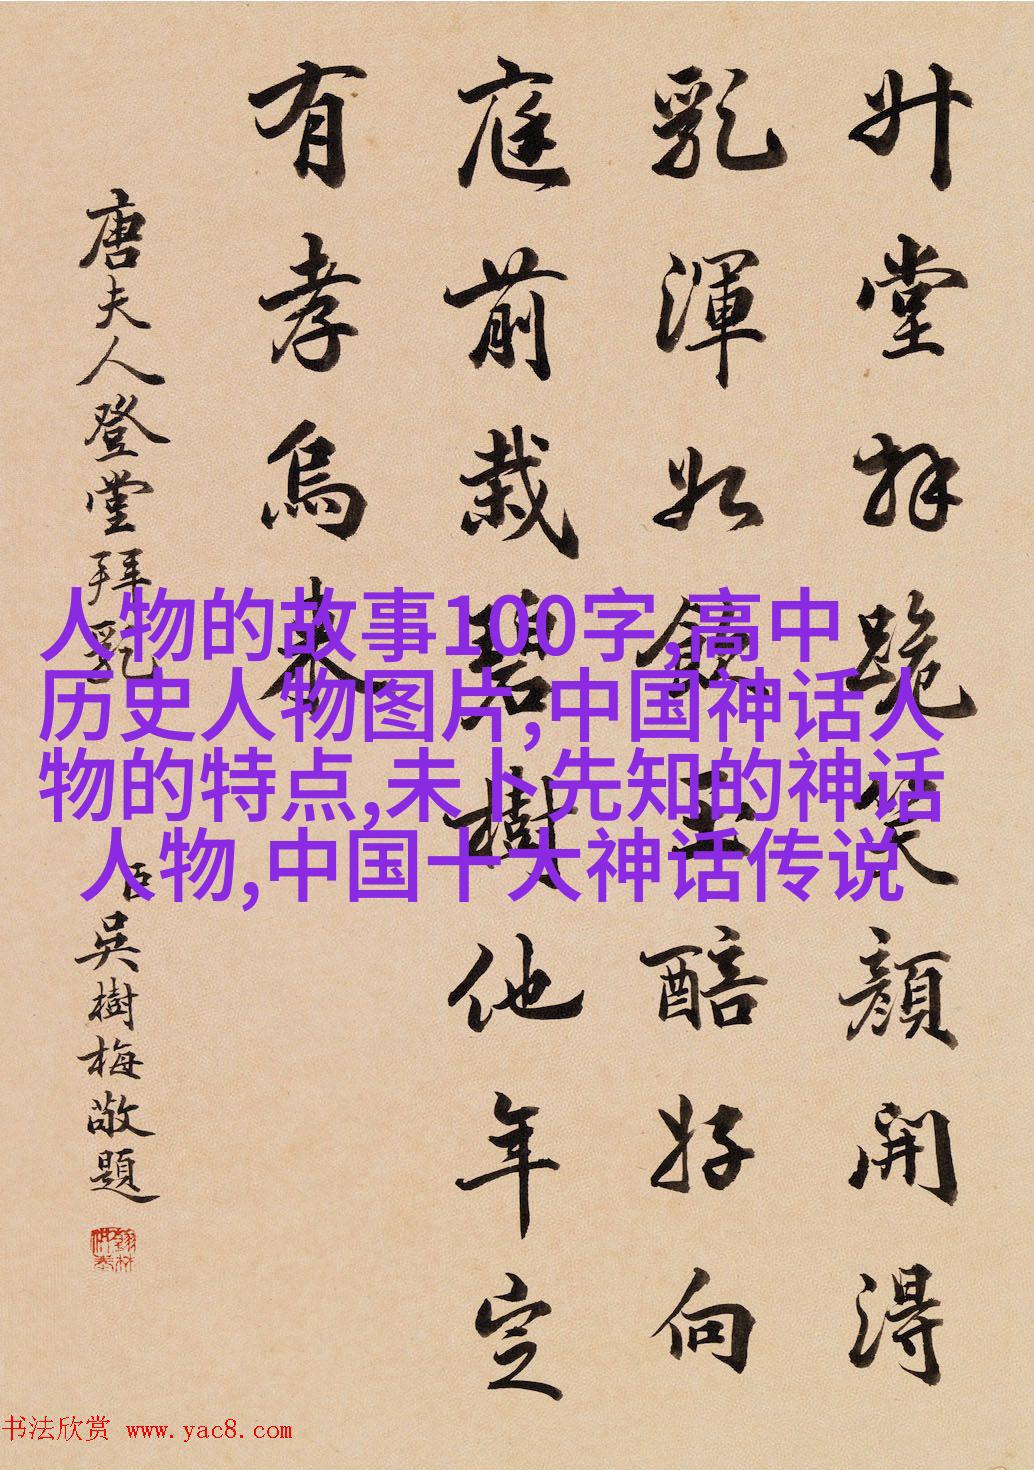 升堂拜跪笑顏開得
乳渾如飲玉醅好向
庭前栽碧樹他年定
有孝烏來
唐夫人登堂拜乳
臣吳樹梅敬題
人物的故事100字,高中
历史人物图片,中国神话人
物的特点,未卜先知的神话
人物,中国十大神话传说
书法欣赏 www.yac8.com